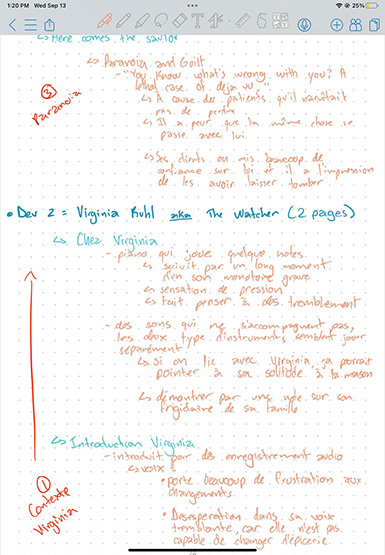 1:20 PM Wed Sep 13
25%
↳ Here comes the savior
↳ Paranoia and Guilt
- "You know what's wrong with you? A
lethal case of deja vu"
↳ À cause des patients qu'il n'arrêtait
pas de perdre
↳ Il a peur que la même chose se
passe avec lui.
↳ Ses clients ou mis beaucoup de
confiance sur lui et il a l'impression
de les avoir laisser tomber
③
Paranoia
• Dev 2 = Virginia Kuhl aka The Watcher (2 pages)
↳ Chez Virginia
- piano qui joue quelque notes.
↳ suivit par un long moment
d'un son monotone grave
↳ sensation de pression
↳ fait penser à des tremblement
- des sons qui ne s'accompagnent pas,
les deux type d'instruments semblent jouer
séparément
↳ si on lie avec Virginia ça pourrait
pointer à sa solitude à la maison
↳ démontrer par une note sur son
frigidaire de sa famille
↳ Introduction Virginia
- introduit par des enregistrement audio
↳ voix :
• porte beaucoup de frustration aux
changements.
• Desesperation dans sa voix
tremblante, car elle n'est pas
capable de changer d'épicerie.
①
Contexte
Virginia